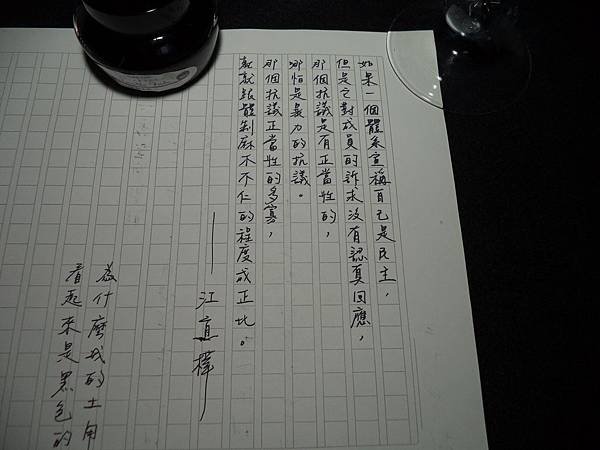 如果一個體系宣稱自己是民主，
但是它對成員的訴求沒有認真回應，
那個抗議是有正當性的，
哪怕是暴力的抗議。
那個抗議正當性的多寡，
就就跟體制麻木不仁的程度成正比。
——江宜樺——
為什麼我的土用
看起來是黑色的